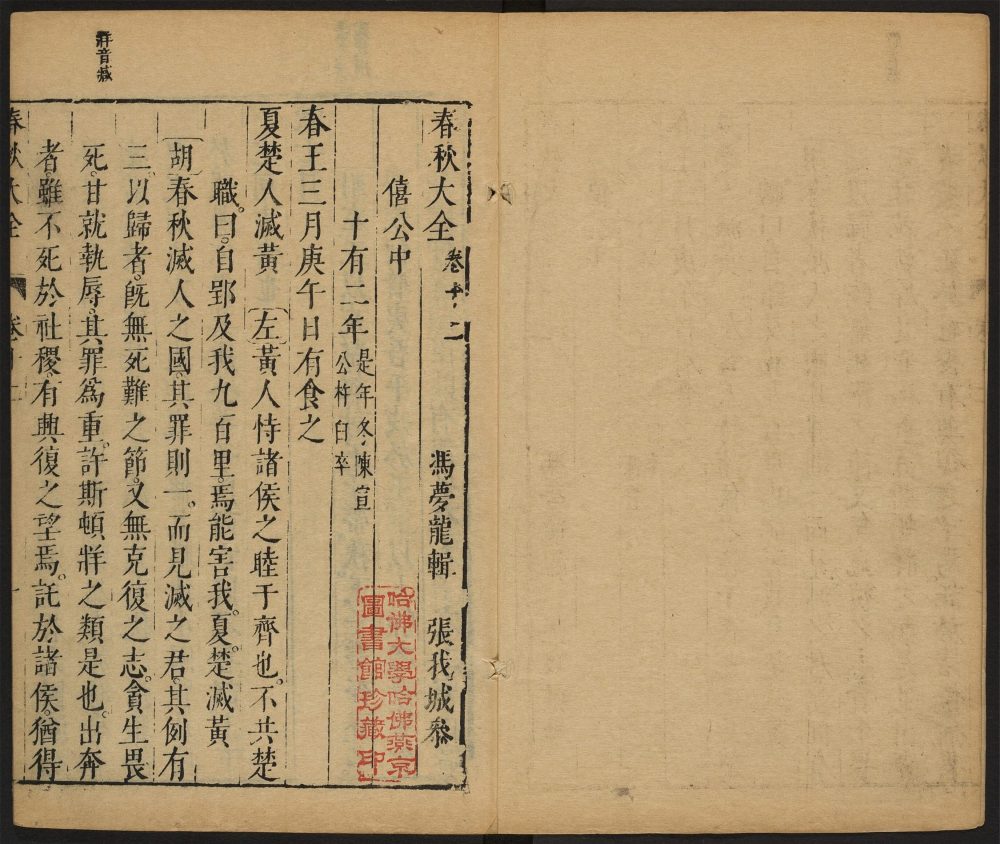 春秋大全 卷十二 馮夢龍輯 張我城叅
僖公中
哈佛大學哈佛燕京
圖書館珍藏印
十有二年 是年冬陳宣
公杵臼卒
春王三月庚午日有食之
夏楚人滅黃 左 黃人恃諸侯之睦于齊也。不共楚
職。曰。自郢及我九百里。焉能害我。夏。楚滅黃
胡 春秋滅人之國。其罪則一。而見滅之君。其例有
三。以歸者。旣無死難之節。又無克復之志。貪生畏
死。甘就執辱。其罪爲重。許斯頓牂之類是也。出奔
者。雖不死於社稷。有興復之望焉。託於諸侯。猶得
牂音臧
春秋大全 卷十二